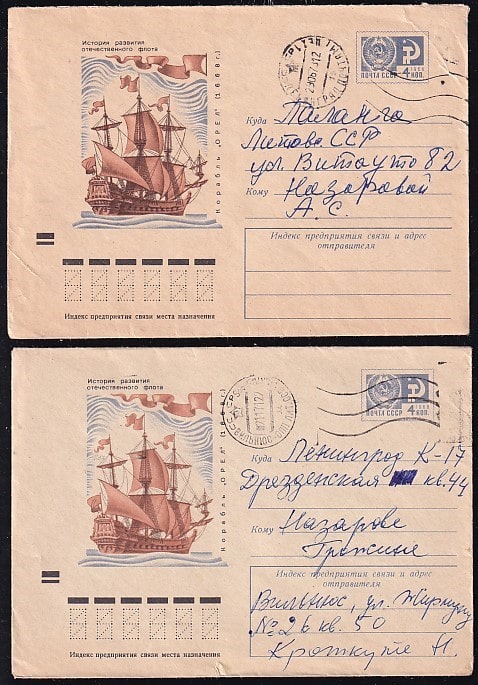 История развития
отечественного флота
Корабль „ОРЕЛ" (1668 г.)
ПОЧТА СССР
4 коп.
Куда Паланга
Литова ССР
ул. Витауто 82
Кому Назаровой
А. С.
Индекс предприятия связи и адрес
отправителя
Индекс предприятия связи места назначения
История развития
отечественного флота
Корабль „ОРЕЛ" (1668 г.)
ПОЧТА СССР
4 коп.
Куда Ленинград К-17
Дрезденская кв. 44
Кому Назарове
Гражине
Индекс предприятия связи и адрес
отправителя
Вильнюс, ул.
№ 26 кв. 50
Индекс предприятия связи места назначения